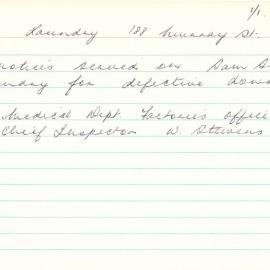 1/1.
Laundry 188 Murray St.
notices served on Sam S
ndry for defective
Medical Dept. Factories offic
Chief Inspector W. Stevens